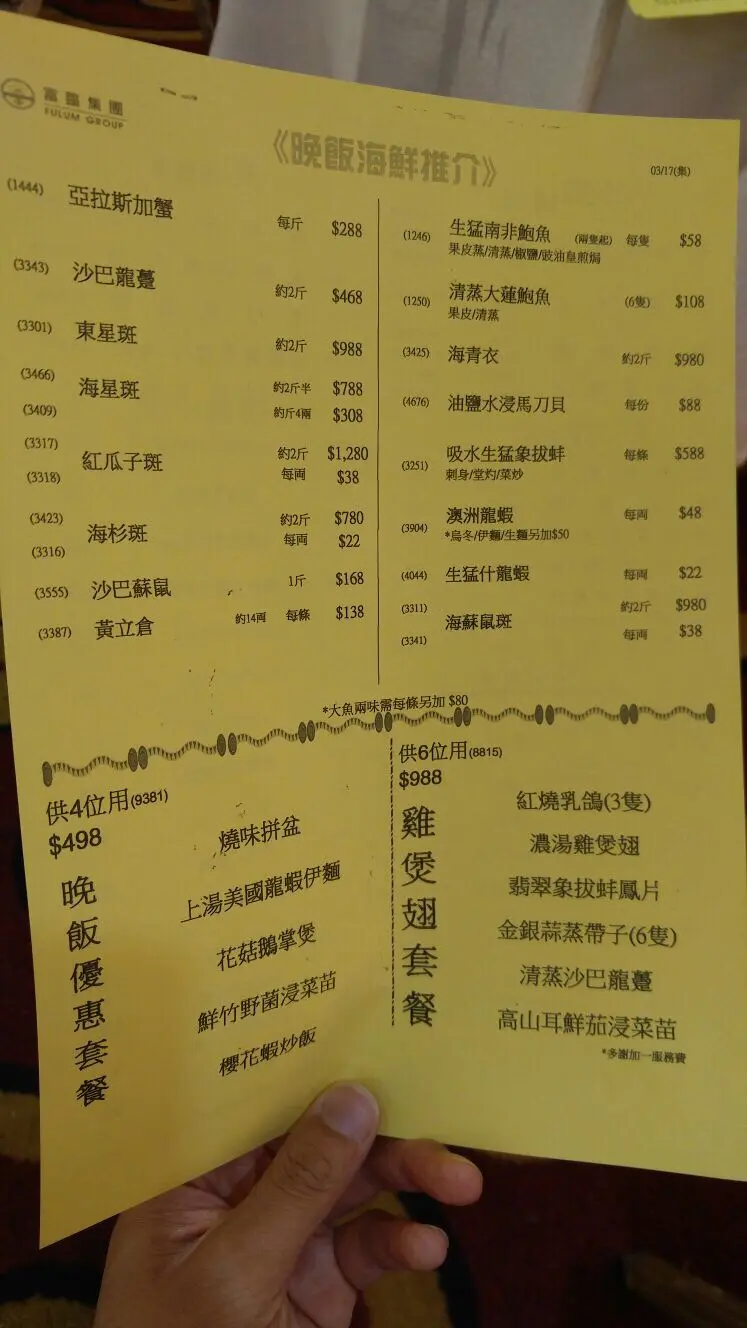 富臨集團
FULUM GROUP
《晚飯海鮮推介》
03/17(集)
(1444) 亞拉斯加蟹 每斤 $288
(3343) 沙巴龍躉 約2斤 $468
(3301) 東星斑 約2斤 $988
(3466) 海星斑 約2斤半 $788
(3409) 約斤4兩 $308
(3317) 紅瓜子斑 約2斤 $1,280
(3318) 每両 $38
(3423) 海杉斑 約2斤 $780
(3316) 每両 $22
(3555) 沙巴蘇鼠 1斤 $168
(3387) 黃立倉 約14両 每條 $138
(1246) 生猛南非鮑魚 (兩隻起) 每隻 $58
果皮蒸/清蒸/椒鹽/豉油皇煎焗
(1250) 清蒸大蓮鮑魚 (6隻) $108
果皮/清蒸
(3425) 海青衣 約2斤 $980
(4676) 油鹽水浸馬刀貝 每份 $88
(3251) 吸水生猛象拔蚌 每條 $588
刺身/堂灼/菜炒
(3904) 澳洲龍蝦 每両 $48
*烏冬/伊麵/生麵另加$50
(4044) 生猛什龍蝦 每両 $22
(3311) 海蘇鼠斑 約2斤 $980
(3341) 每両 $38
*大魚兩味需每條另加 $80
供4位用(9381)
$498
晚飯優惠套餐
燒味拼盆
上湯美國龍蝦伊麵
花菇鵝掌煲
鮮竹野菌浸菜苗
櫻花蝦炒飯
供6位用(8815)
$988
雞煲翅套餐
紅燒乳鴿(3隻)
濃湯雞煲翅
翡翠象拔蚌鳳片
金銀蒜蒸帶子(6隻)
清蒸沙巴龍躉
高山耳鮮茄浸菜苗
*多謝加一服務費